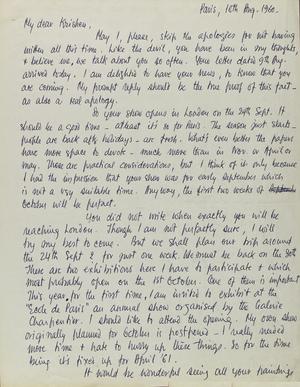 Paris, 10th Aug. 1960.
My dear Krishen,
May I, please, skip the apologies for not having
written all this time. Like the devil, you have been in my thoughts,
& believe me, we talk about you so often. Your letter dated 9th Aug.
arrived today. I am delighted to have your news, to know that you
are coming. My prompt reply should be the true proof of this fact —
as also a real apology.
So your show opens in London on the 29th Sept. It
should be a good time — atleast it is so for Paris. The season just starts —
people are back after holidays — are fresh. What's even better the papers
have more space to devote — much more than in Nov. or April or
May. These are practical considerations, but I think of it only because
I had the impression that your show was for early September which
is not a very suitable time. Anyway, the first two weeks of
October will be perfect.
You did not write when exactly you will be
reaching London. Though I am not perfectly sure, I will
try my best to come. But we shall plan our trip around
the 24th Sept & for just one week. We must be back on the 30th.
There are two exhibitions here I have to participate & which
most probably open on the 1st October. One of them is important
This year, for the first time, I am invited to exhibit at the
"Ecole de Paris" an annual show organised by the Galerie
Charpentier. I should like to attend the opening. My own show
originally planned for October is postponed — I really needed
more time & hate to hurry up these things. So for the time
being it's fixed up for April '61.
It would be wonderful seeing all your paintings